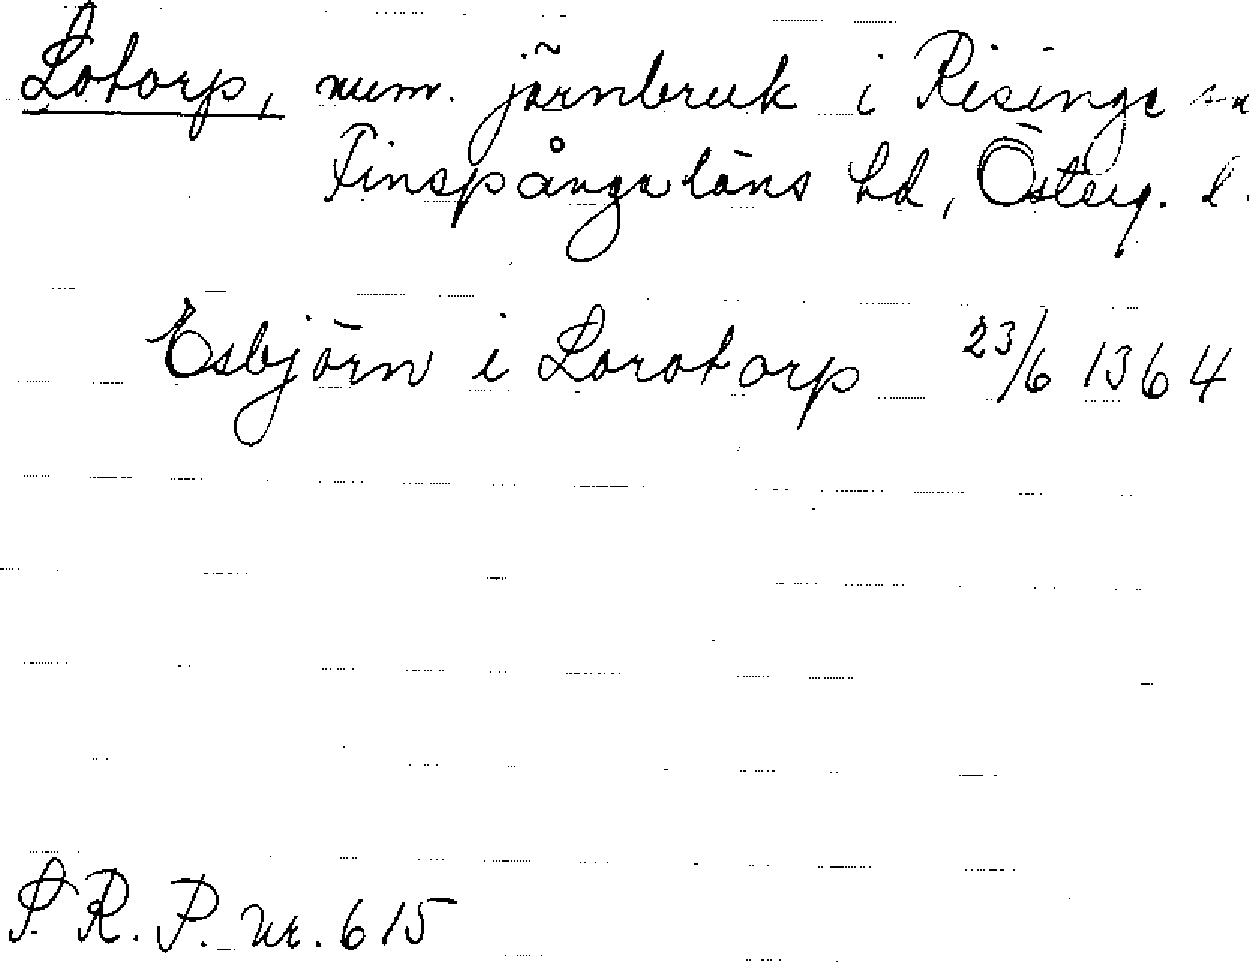 Lotorp, num. järnbruk i Risinge sn
Finspånga läns hd, Österg. l.
Esbjörn i Lorotorp 23/6 1364
S. R. P. nr. 615